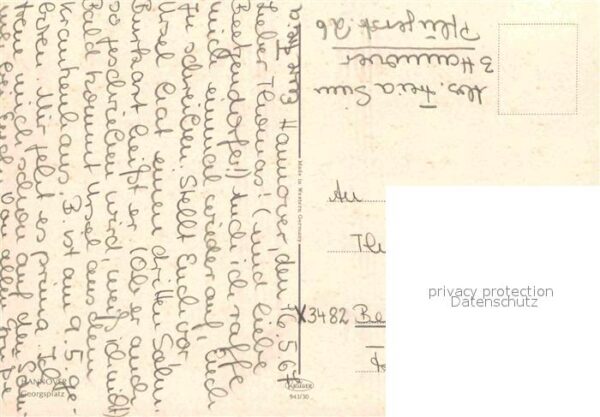 Hannover, den 16.5.67
Lieber Thomas! (und liebe
Beetzendorfer!) Auch ich raffe
mich einmal wieder auf, Euch
zu schreiben. Stellt Euch vor
Ursel hat einen dritten Sohn.
Burkart heißt er (Ob er auch
so geschrieben wird, weiß ich nicht)
Bald kommt Ursel aus dem
Krankenhaus. B. ist am 9.5. ge-
boren. Mir geht es prima. Ich
freue mich schon auf den
Euch von allen
Abs. Freia
3 Hannover
Pflügerstr. 26
An
X3482 Be
Made in Western Germany
KRÜGER
941/30
HANNOVER
Georgsplatz
privacy protection
Datenschutz